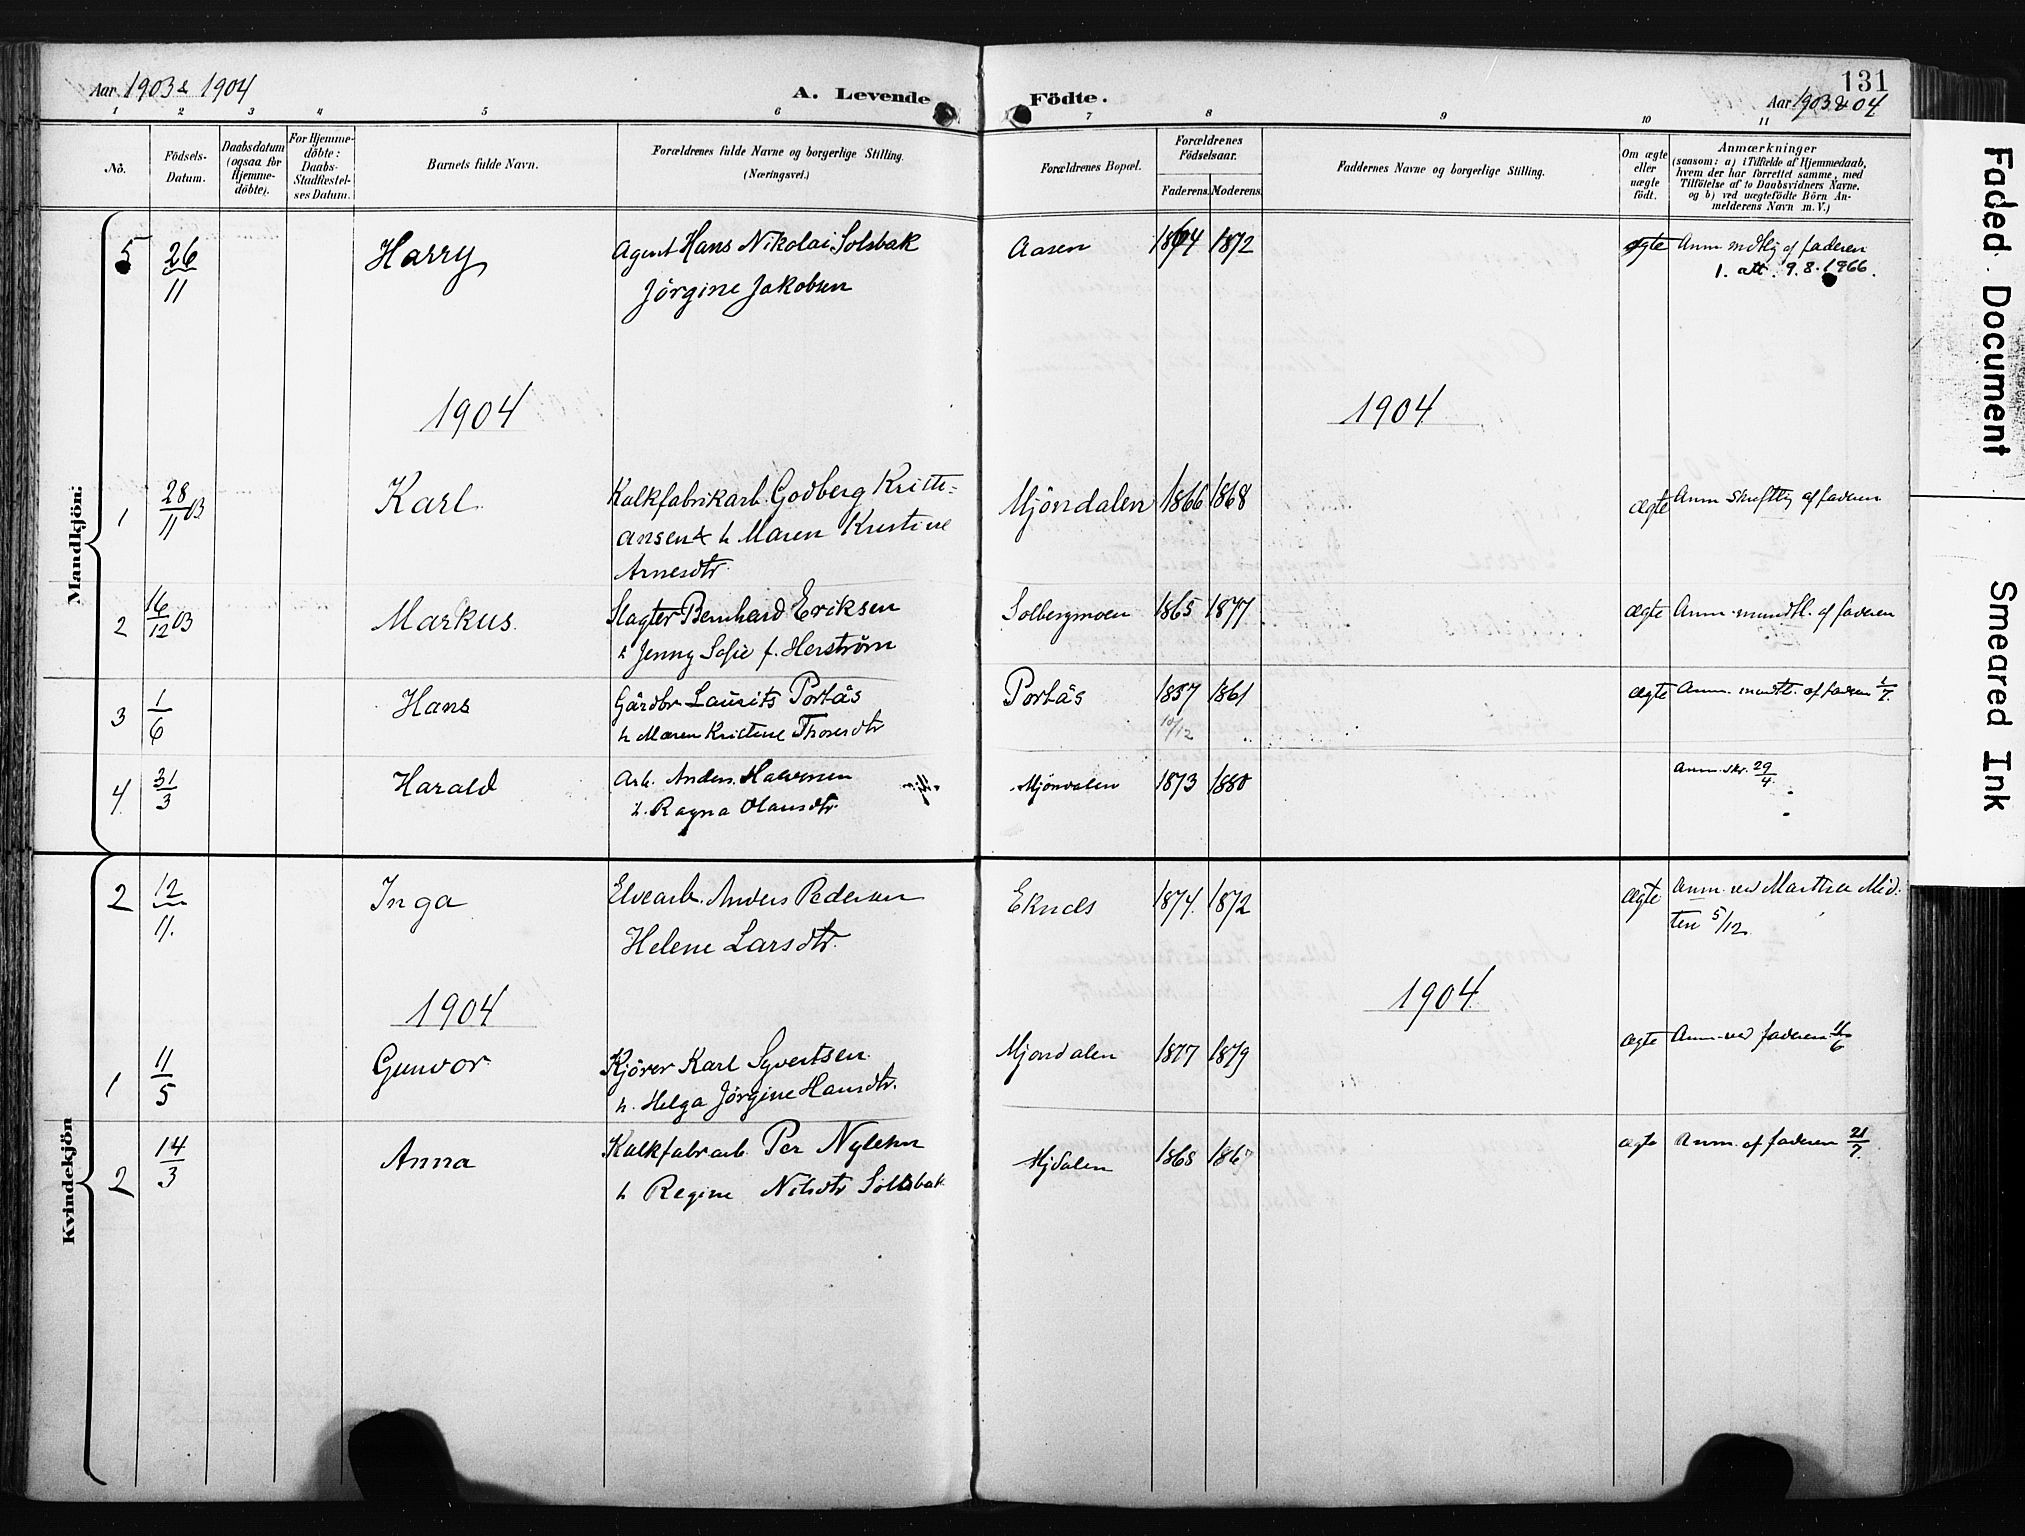 Aar 1903 & 1904
A. Levende Födte.
131
Aar 1903 & 04
1 2 3 4 5 6 7 8 9 10 11
No.
Födsels-
Datum.
Daabsdatum
(ogsaa for
Hjemme-
döbte).
For Hjemme-
döbte:
Daabs-
Stadfæstel-
ses Datum.
Barnets fulde Navn.
Forældrenes fulde Navne og borgerlige Stilling.
(Næringsvei.)
Forældrenes Bopæl.
Forældrenes
Födselsaar.
Faderens. Moderens.
Faddernes Navne og borgerlige Stilling.
Om ægte
eller
uægte
födt.
Anmærkninger
(saasom: a) i Tilfælde af Hjemmedaab,
hvem der har forrettet samme, med
Tilföielse af to Daabsvidners Navne.
og b) ved uægtefödte Börn An-
melderens Navn m.V.)
Mandkjön:
5 26/11 Harry Agent Hans Nikolai Solsbak Aasen 1872 ægte Anm mdtlig af faderen
Jörgine Jakobsen 1. att. 9.8.1966.
1904 1904
1 28/11 03 Karl Kalkfabrikarb. Godberg Kristi- Mjöndalen 1866 1868 ægte Anm skriftlig af faderen
ansen & h Maren Kristine
Arnesdtr
2 16/12 03 Markus. Slagter Bernhard Eriksen Solbergmoen 1865 1877 ægte Anm. mundtl. af faderen
h Jenny Sofie f. Herström
3 1/6 Hans Gårdbr Laurits Portås Portås 1857 1861 ægte Anm. mundtl. af faderen 1/7
h Maren Kristine Thoresdtr 10/12
4 31/3 Harald Arb. Anders Halvorsen Mjöndalen 1873 1880 Anm. skr. 29/4
h. Ragna Olausdtr.
Kvindekjön
2 12/11. Inga Elvearb. Anders Pedersen Eknes 1874 1872 ægte Anm. ved Marthea Mid-
Helene Larsdtr. ten 5/12
1904 1904
1 11/5 Gunvor Kjörer Karl Syvertsen Mjondalen 1877 1879 ægte Anm. ved faderen 11/6
h. Helga Jörgine Hansdtr.
2 14/3 Anna Kalkfabrarb. Per Nylehn Mjdalen 1865 1867 ægte Anm. af faderen 21/7.
h Regine Nilsdtr Solsbak
Faded Document
Smeared Ink